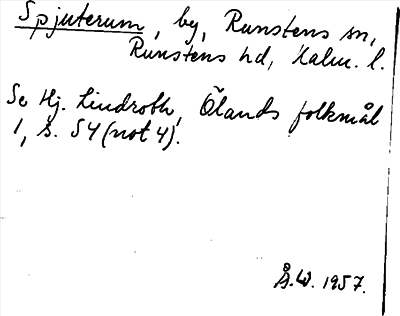 Spjuterum, by, Runstens sn,
Runstens hd, Kalm. l.
Se Hj. Lindroth, Ölands folkmål
1, s. 54 (not 4).
Å.W. 1957.